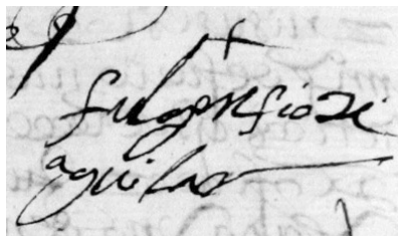 fulgensio de
aguilar